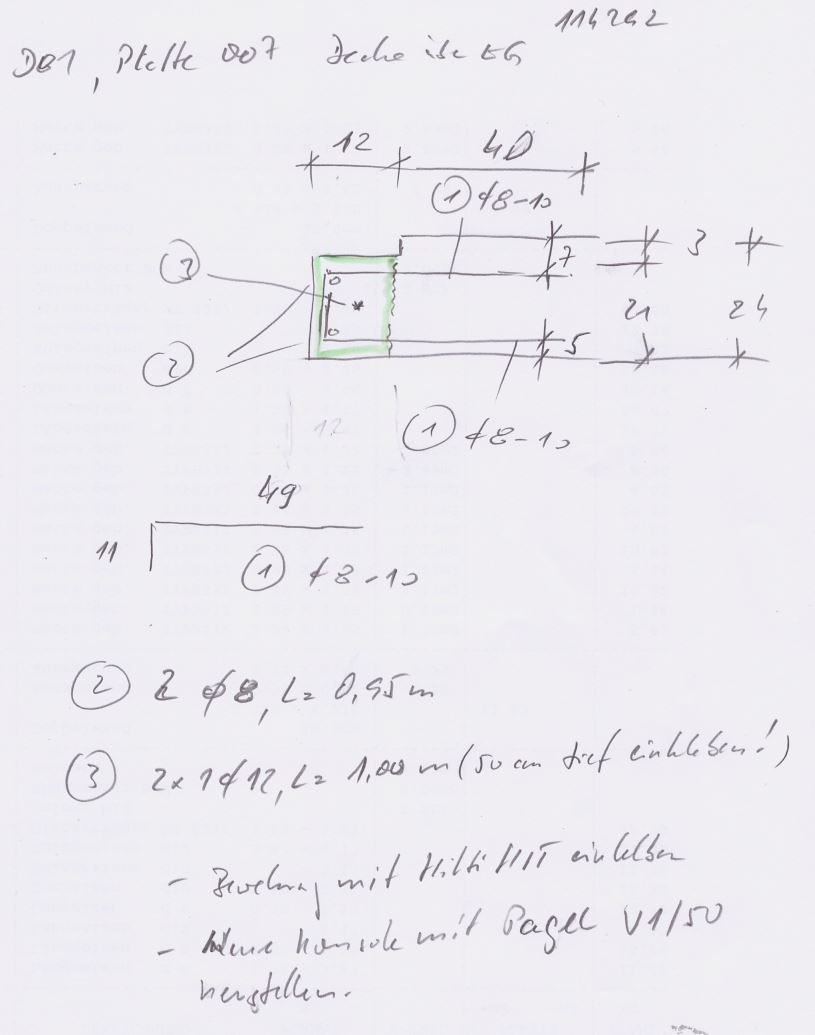 114242
DB1, Platte 007 Decke über EG
12 40
① ∅8-10
③ 7 3
21 24
② 5
① ∅8-10
12
49
11
① ∅8-10
② 2 ∅8, L= 0,95m
③ 2x 1∅12, L= 1,00 m (50 cm tief einkleben!)
- Bewehrung mit Hilti HIT einkleben
- Konsole mit Pagel V1/50
herstellen.